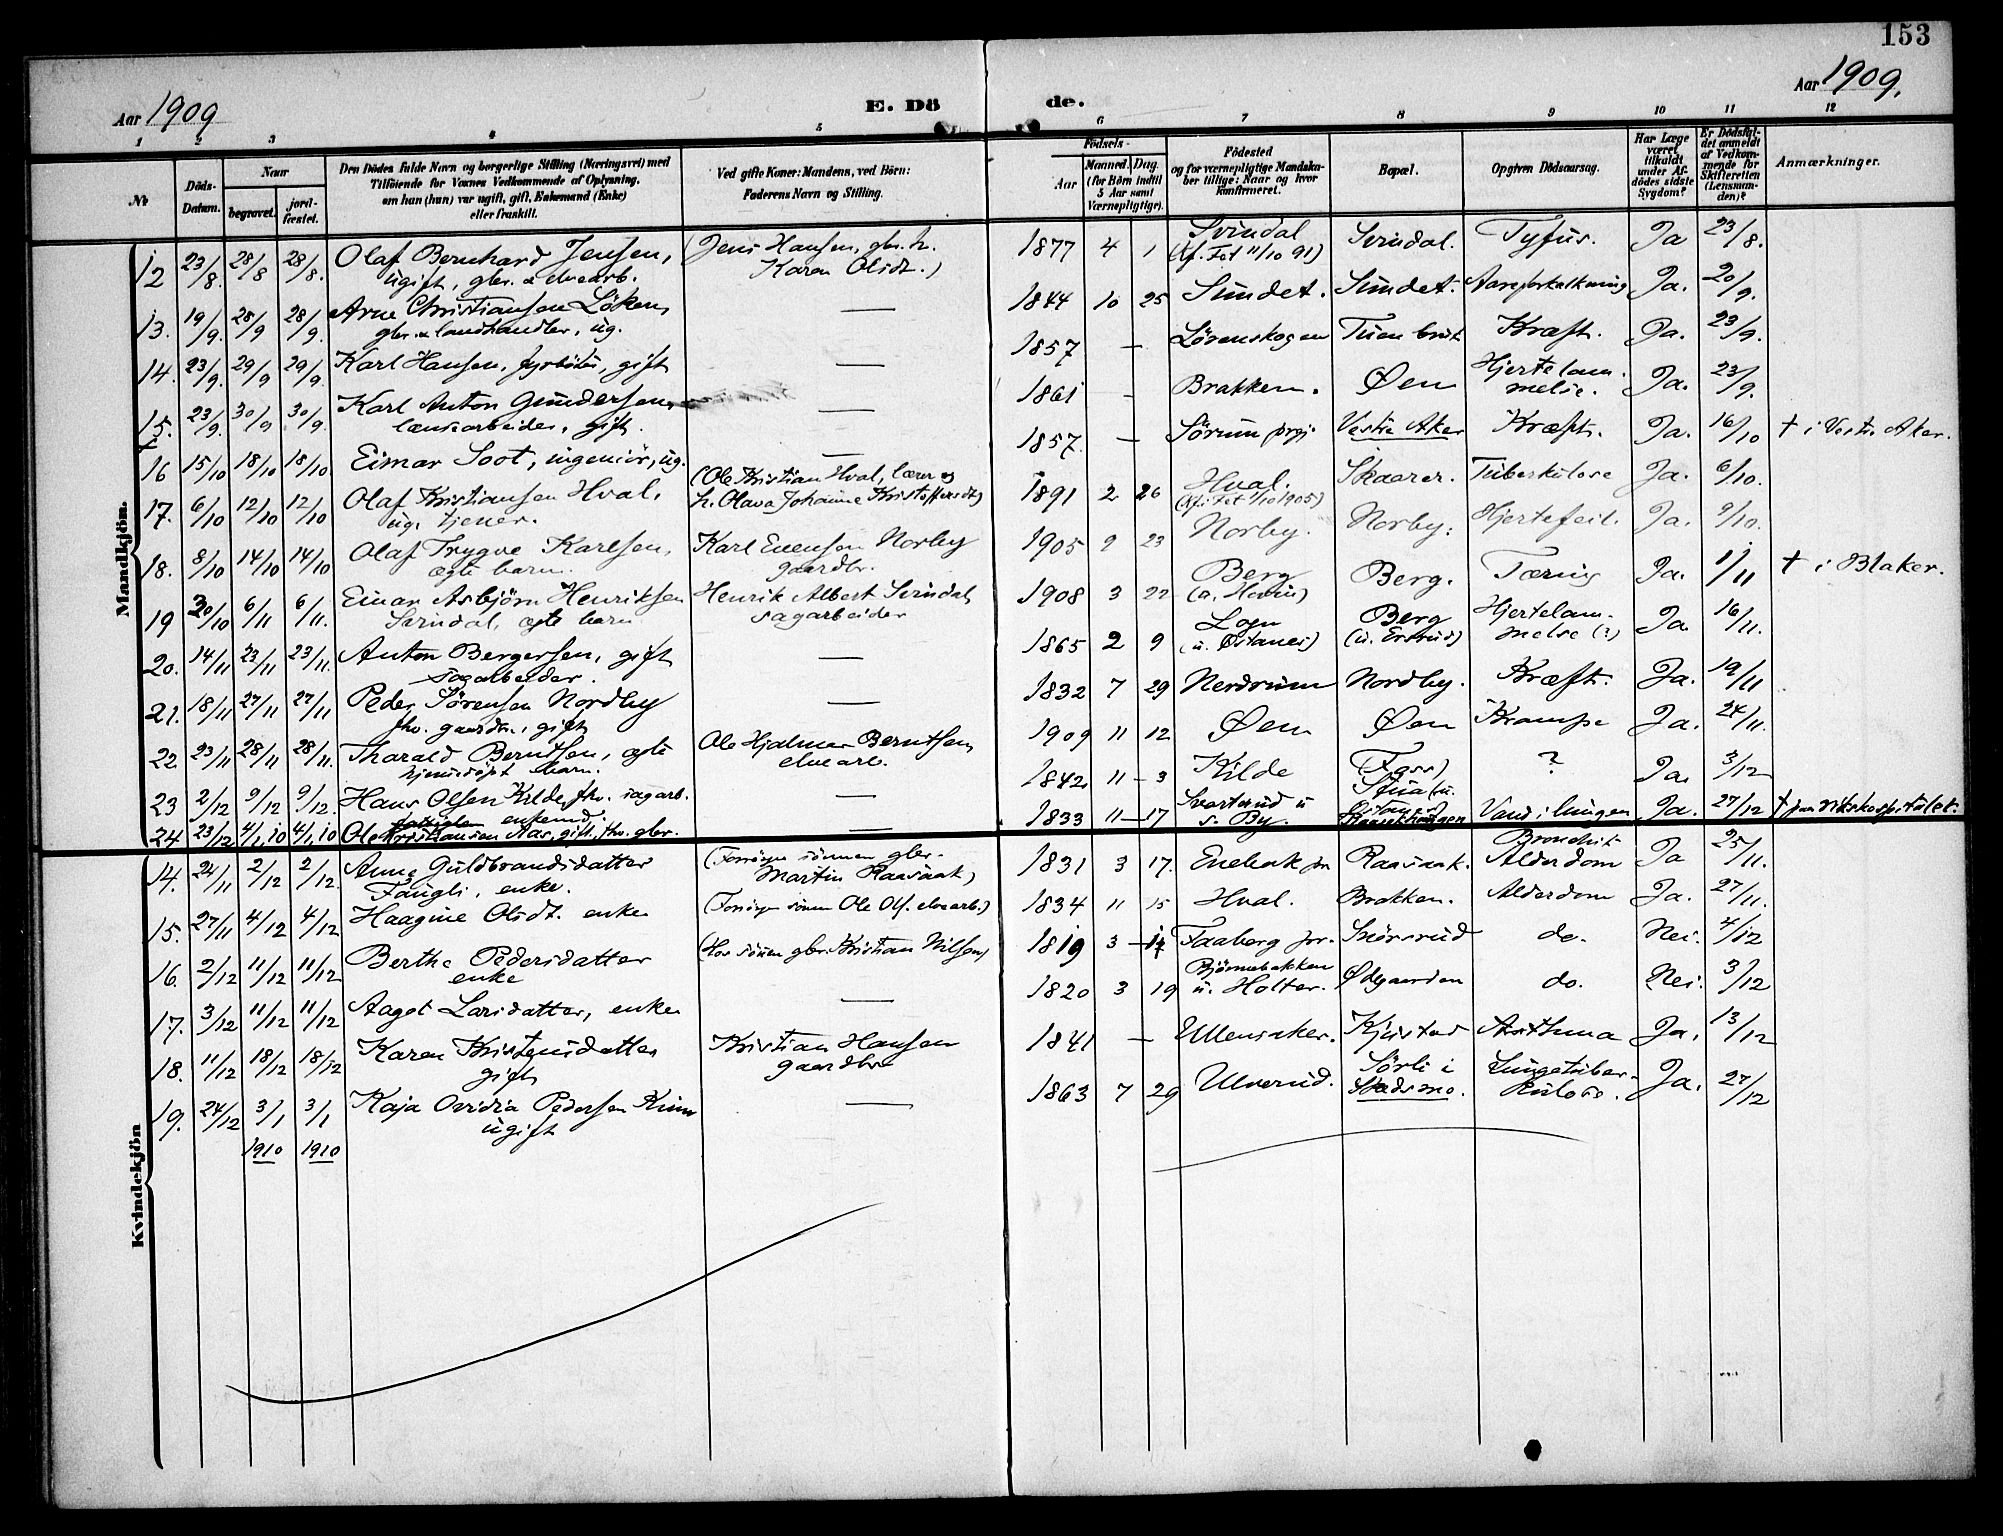 153
Aar 1909
E. Dö
de.
Aar 1909.
1 2 3 4 5 6 7 8 9 10 11 12
№
Döds-Datum.
Naar
begravet.
jord-fæstet.
Den Dödes fulde Navn og borgerlige Stilling (Næringsvei) med
Tilföiende for Voxnes Vedkommende af Oplysning,
om han (hun) var ugift, gift, Enkemand (Enke)
eller fraskilt.
Ved gifte Koner: Mandens, ved Börn:
Faderens Navn og Stilling.
Födsels-
Aar
Maaned. Dag.
(for Börn indtil
5 Aar samt
Værnepligtige).
Födested
og for værnepligtige Mandska-
ber tillige: Naar og hvor
konfirmeret.
Bopæl.
Opgiven Dödsaarsag.
Har Læge
været
tilkaldt
under Af-
dödes sidste
Sygdom?
Er Dödsfal-
det anmeldt
af Vedkom-
mende for
Skifteretten
(Lensman-
den)?
Anmærkninger.
Mandkjön.
12 23/8. 28/8 28/8. Olaf Bernhard Jensen, (Jens Hansen, gbr. h. 1877 4 1 Svindal Svindal. Tyfus. Ja 23/8.
ugift, gbr. & elvearb. Karen Olsdt.) (Kf. Fet 11/10 91)
13. 19/9. 28/9 28/9. Arne Christiansen Löken, — 1844 10 25 Sundet. Sundet. Aareforkalkning Ja. 20/9.
gbr. & landhandler, ug.
14. 23/9. 29/9 29/9. Karl Hansen, fyrböter, gift — 1857 — Lörenskogen Tuen brut Kræft. Ja. 23/9.
15. 23/9. 30/9 30/9. Karl Anton Gundersen, — 1861 - Brakken. Øen Hjertelam- Ja. 23/9.
lænsearbeider, gift. melse.
16 15/10 18/10 18/10 Eimar Soot, ingeniör, ug. — 1857. — Sörum prgj. Vestre Aker Kræft. Ja. 16/10 † i Vestr. Aker.
17. 6/10 12/10 12/10 Olaf Kristiansen Hval, (Ole Kristian Hval, lærer og 1891 2 26 Hval. Skaarer. Tuberkulose Ja. 6/10.
ug. tjener. h. Olava Johanne Kristoffersdt) (Kf. Fet 1/10 1905)
18. 8/10 14/10 14/10 Olaf Trygve Karlsen, Karl Evensen Norby 1905 9 23 Norby. Norby. Hjertefeil. Ja. 9/10.
ægte barn. gaardbr.
19 30/10 6/11 6/11. Einar Asbjörn Henriksen Henrik Albert Svindal, 1908 3 22 Berg Berg. Tæring Ja. 1/11 † i Blaker.
Svindal, ægte barn sagarbeider (a. Hovin)
20. 14/11 23/11 23/11. Anton Bergersen, gift — 1865 2 9 Logn Berg Hjertelam- Ja 16/11.
sagarbeider. (u. Östanes) melse (?)
21. 18/11 27/11 27/11 Peder Sörensen Nordby — 1832 7 29 Nerdrum Nordby. Kræft. Ja. 19/11
fhv. gaardbr., gift
22 23/11 28/11 28/11. Tharald Berntsen, ægte Ole Hjalmar Berntsen, 1909 11 12 Øen Øen Krampe Ja. 24/11.
hjemmedøpt barn. elvearb.
23 2/12 9/12 9/12. Hans Olsen Kilde, fhv. sagarb. — 1842 11 - 3 Kilde (Foss) ? Ja. 3/12
enkemd.
24 23/12 4/1,10 4/1,10 Ole Kristiansen Aas, gift, fhv. gbr. — 1833 11 - 17 Svartrud u Vand i lungen Ja. 27/12 † paa Rikshospitalet.
s. By.
Kvindekjön
14. 24/11 2/12 2/12. Anne Guldbrandsdatter (Forsörges sönnen gbr. 1831 3 17. Enebak pr Raasaak. Bronchit Ja 25/11.
Faugli, enke. Martin Raasaak) Alderdom
15. 27/11 4/12 4/12 Haagine Olsdt. enke (Forsörges sönnen Ole Olf. elvearb.) 1834 11 15 Hval. Brakken. Alderdom Ja. 27/11.
16. 2/12 11/12 11/12 Berthe Pedersdatter (Hos sönnen gbr. Kristian Nilsen) 1819 3 - 14 Faaberg pr. Snörsrud do. Nei. 4/12
enke
17. 3/12 11/12 11/12 Aaget Larsdatter, enke — 1820 3 19 Björnebakken Ødegaarden do. Nei. 3/12
u. Holter.
18. 11/12 18/12 18/12 Karen Kristensdatter Kristian Hansen 1841 — Ullensaker. Kjustad Asthma Ja. 13/12
gift gaardbr.
19. 24/12 3/1 3/1 Kaja Ovidia Pedersen Krim — 1863 7 29 Ulverud. Sörli i Lungetuber- Ja. 27/12
ugift Skedsmo. kulose.
1910 1910